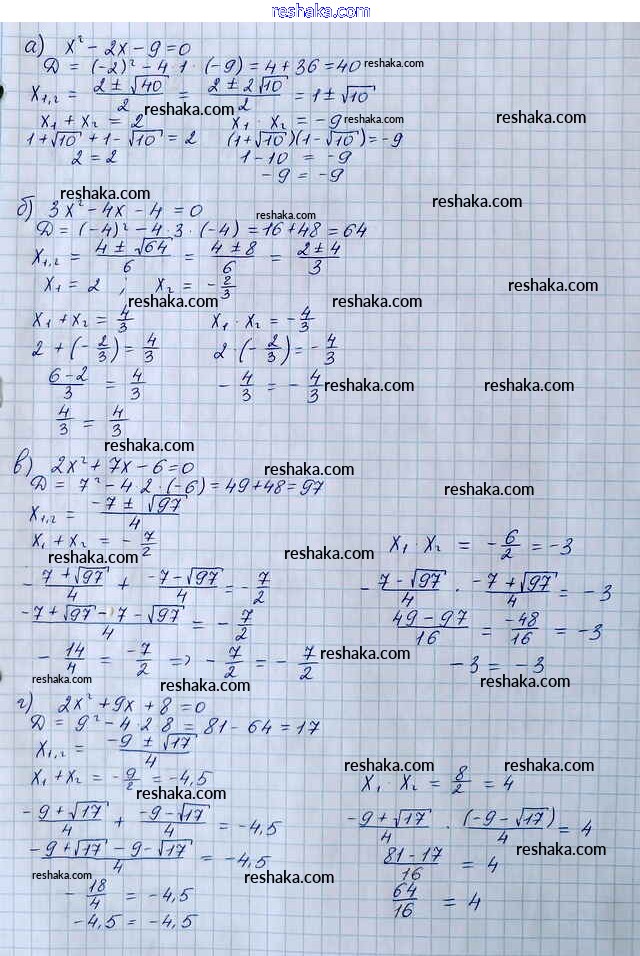 reshaka.com
а) x² - 2x - 9 = 0
D = (-2)² - 4·1·(-9) = 4 + 36 = 40 reshaka.com
x₁,₂ = (2 ± √40)/2 = (2 ± 2√10)/2 = 1 ± √10
reshaka.com
x₁ + x₂ = 2 x₁ · x₂ = -9 reshaka.com
1 + √10 + 1 - √10 = 2 (1 + √10)(1 - √10) = -9
2 = 2 1 - 10 = -9
reshaka.com reshaka.com
-9 = -9
reshaka.com reshaka.com
б) 3x² - 4x - 4 = 0 reshaka.com
D = (-4)² - 4·3·(-4) = 16 + 48 = 64
x₁,₂ = (4 ± √64)/6 = (4 ± 8)/6 = (2 ± 4)/3
reshaka.com
x₁ = 2 ; x₂ = -2/3 reshaka.com
reshaka.com
x₁ + x₂ = 4/3 x₁ · x₂ = -4/3
2 + (-2/3) = 4/3 2·(-2/3) = -4/3 reshaka.com
(6-2)/3 = 4/3 -4/3 = -4/3 reshaka.com reshaka.com
4/3 = 4/3
reshaka.com
в) 2x² + 7x - 6 = 0 reshaka.com
D = 7² - 4·2·(-6) = 49 + 48 = 97 reshaka.com
x₁,₂ = (-7 ± √97)/4
x₁ + x₂ = -7/2 x₁ · x₂ = -6/2 = -3
reshaka.com reshaka.com
-(7 + √97)/4 + (-7 - √97)/4 = -7/2 -(7 - √97)/4 · (-7 + √97)/4 = -3
(-7 + √97 - 7 - √97)/4 = -7/2 (49 - 97)/16 = -48/16 = -3
-14/4 = -7/2 => -7/2 = -7/2 reshaka.com -3 = -3 reshaka.com
reshaka.com reshaka.com
г) 2x² + 9x + 8 = 0
D = 9² - 4·2·8 = 81 - 64 = 17
x₁,₂ = (-9 ± √17)/4
reshaka.com reshaka.com
x₁ + x₂ = -9/2 = -4,5 x₁ · x₂ = 8/2 = 4
reshaka.com
(-9 + √17)/4 + (-9 - √17)/4 = -4,5 (-9 + √17)/4 · (-9 - √17)/4 = 4
reshaka.com
(-9 + √17 - 9 - √17)/4 = -4,5 (81 - 17)/16 = 4
reshaka.com reshaka.com
-18/4 = -4,5 64/16 = 4
reshaka.com
-4,5 = -4,5
reshaka.com